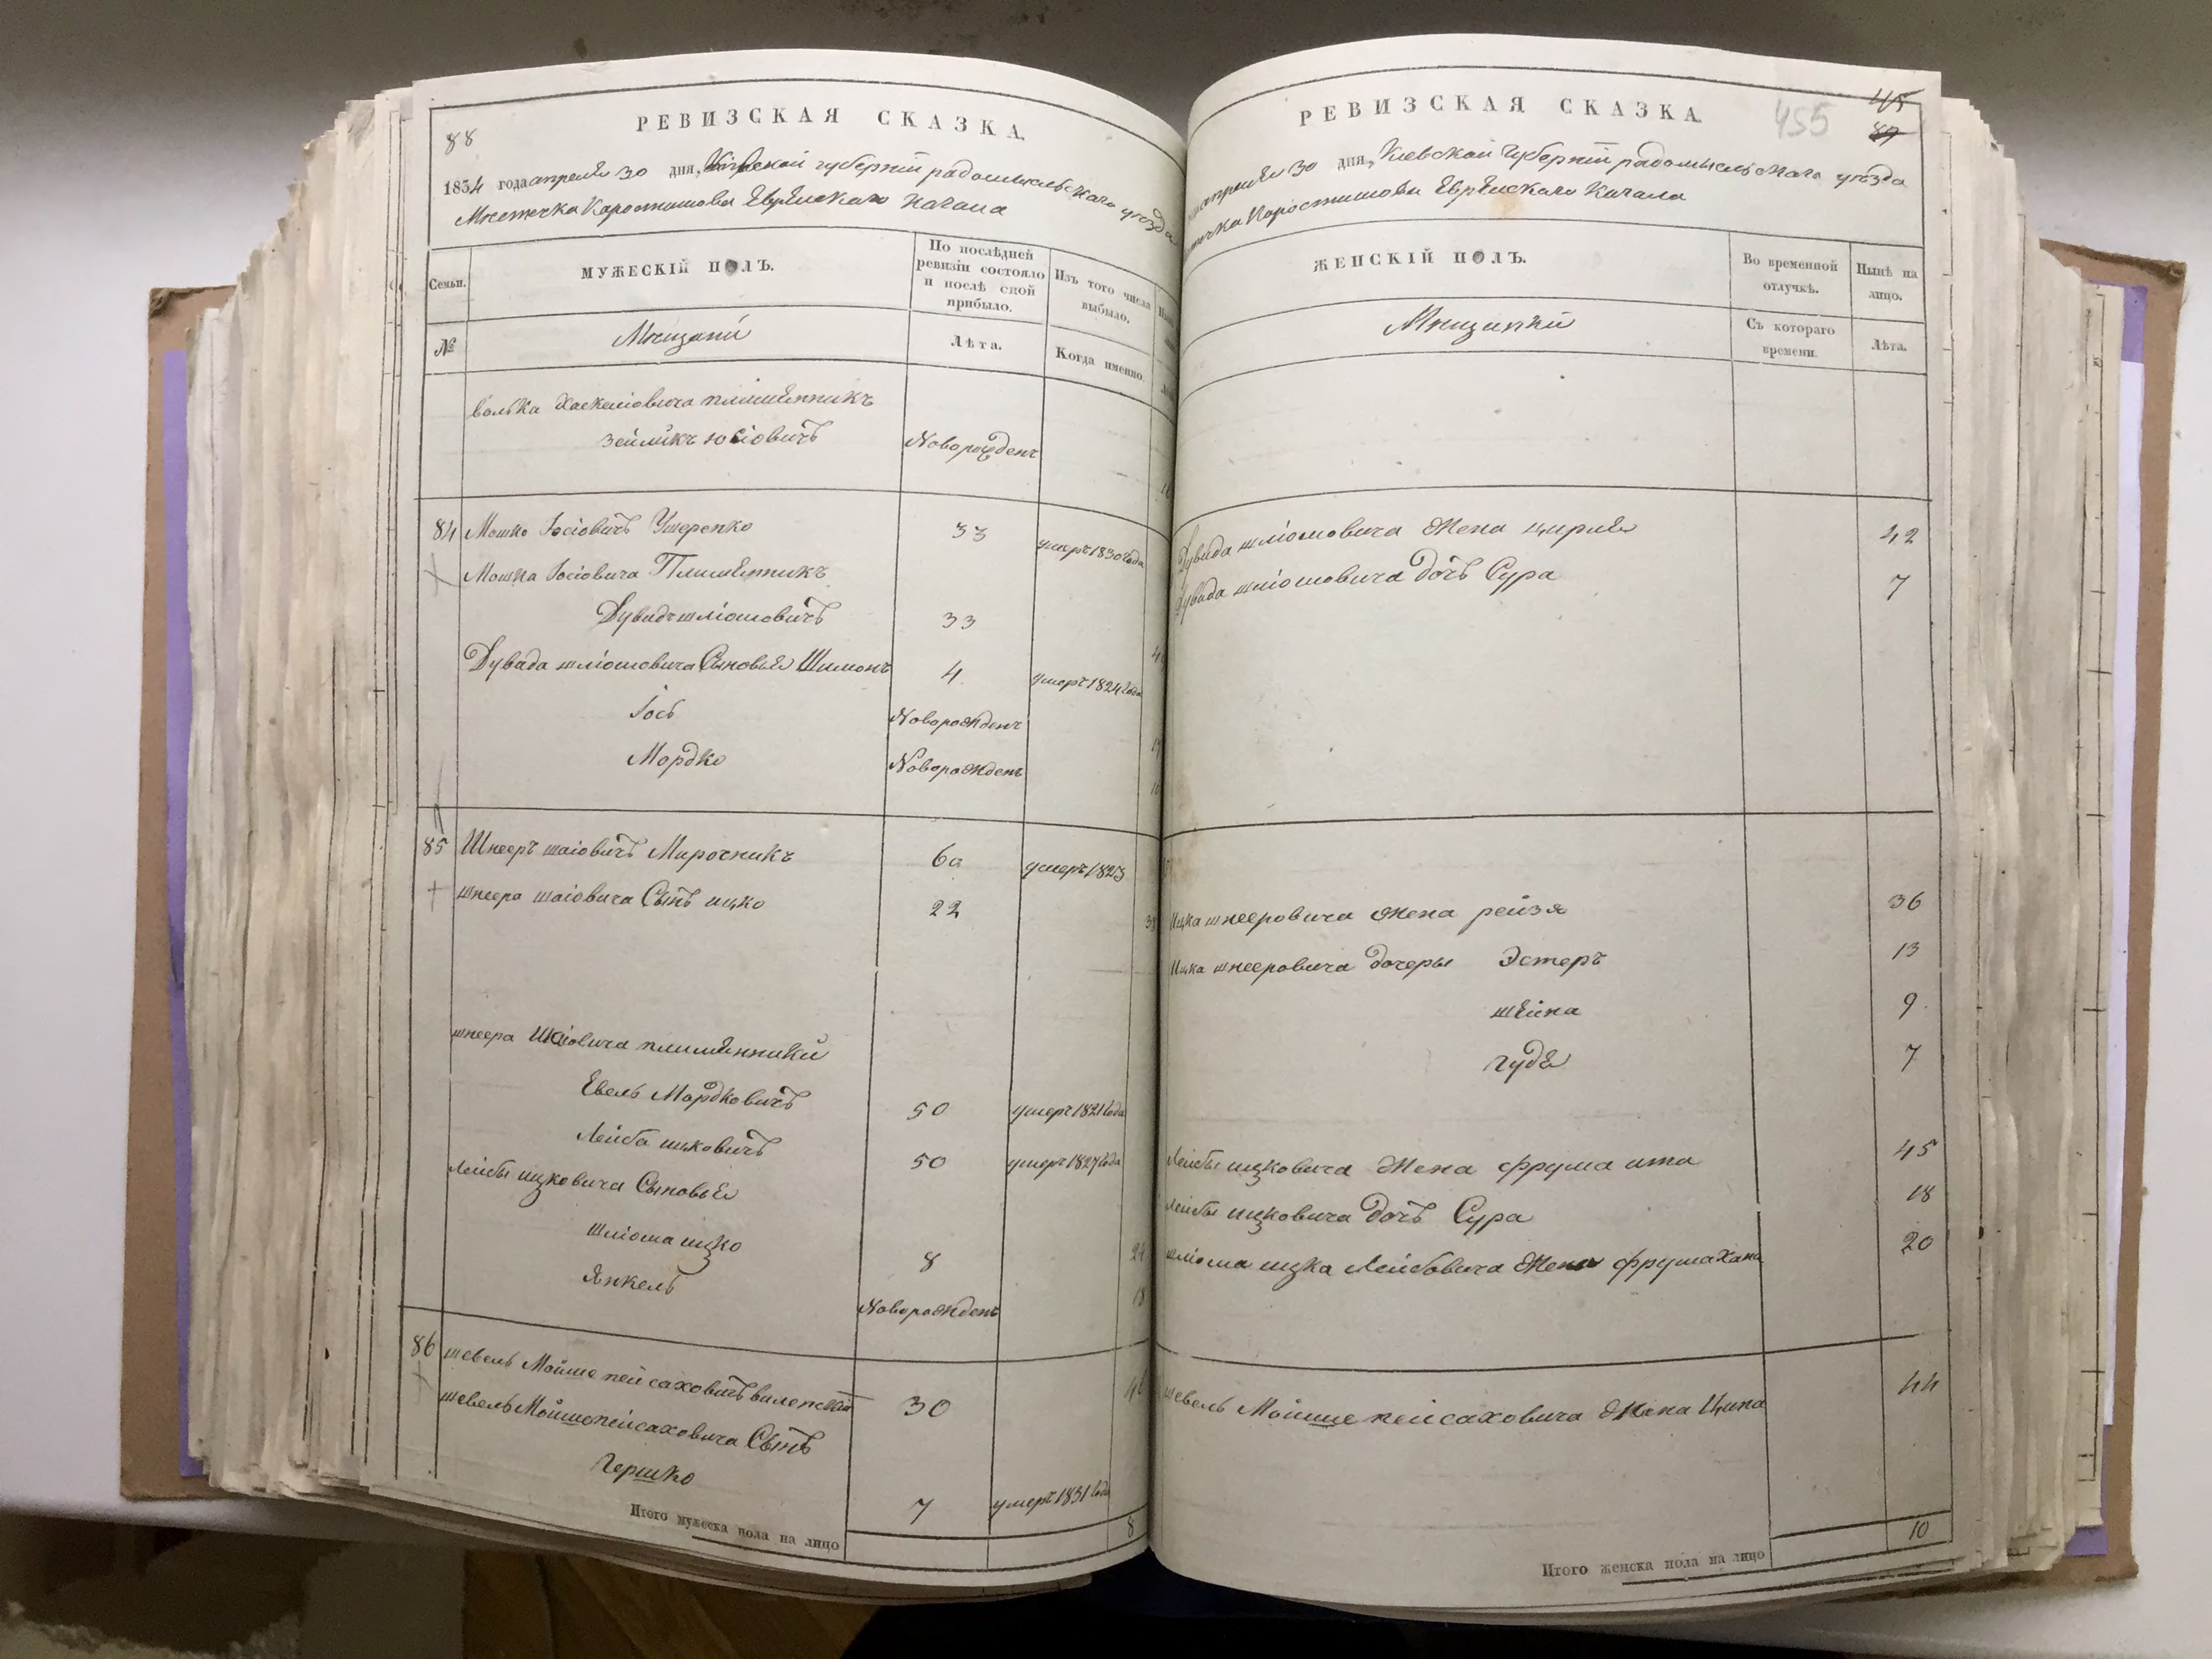 88
РЕВИЗСКАЯ СКАЗКА.
1834 года апреля 30 дня, Кіевской губерніи радомысльскаго уѣзда
Мѣстечка Коростышова Еврейскаго Кагала
Семьи. МУЖЕСКІЙ ПОЛЪ. По послѣдней ревизіи состояло и послѣ сной прибыло. Изъ того числа выбыло.
№ Мѣщани Лѣта. Когда именно.
волька Хаскеліовича плимѣнникъ
Зейликъ Юсіовичъ Новорожденъ
84 Мошко Іосіовичъ Ушеренко 33 умеръ 1830 года
Мошка Іосіовича Плимѣнникъ
Дувидъ шліомовичъ 33
Дувида шліомовича Сыновья Шимонъ 4 умеръ 1824 года
Іось Новорожденъ
Мордко Новорожденъ
85 Шнееръ шаіовичъ Мирочникъ 60 умеръ 1823
шнеера шаіовича Сынъ ицко 22
шнеера Шаіовича плимѣнники
Евель Мордковичъ 50 умеръ 1821 года
Лейба ицковичъ 50 умеръ 1827 года
Лейбы ицковича Сыновья
шліома ицко 8 24
Янкель Новорожденъ 18
86 шевель Мойше пейсаховичъ виленскій 30
шевель Мойше пейсаховича Сынъ
Гершко 7 умеръ 1831 года
Итого мужеска пола на лицо 8
455 45
89
РЕВИЗСКАЯ СКАЗКА.
апреля 30 дня, Кіевской Губерніи радомысльскаго уѣзда
Коростышова Еврейскаго Кагала
ЖЕНСКІЙ ПОЛЪ. Во временной отлучкѣ. Нынѣ на лицо.
Мѣщанки Съ котораго времени. Лѣта.
Дувида шліомовича Жена цирля 42
Дувида шліомовича дочь Сура 7
Ицка шнееровича Жена рейзя 36
Ицка шнееровича дочеры Эстеръ 13
шейна 9
гудя 7
Лейбы ицковича Жена фрума ита 45
Лейбы ицковича дочь Сура 18
шліома ицка Лейбовича Жена фрума Хана 20
шевель Мойше пейсаховича Жена Ципа 44
Итого женска пола на лицо 10